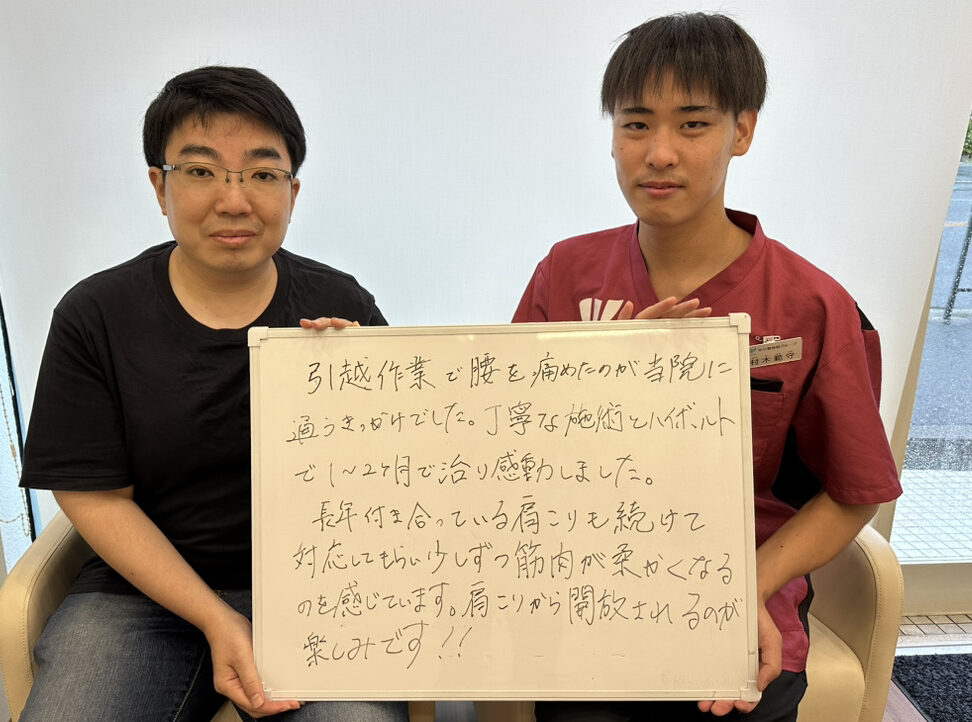 引越作業で腰を痛めたのが当院に
通うきっかけでした。丁寧な施術とハイボルト
で1~2ヶ月で治り感動しました。
長年付き合っている肩こりも続けて
対応してもらい少しずつ筋肉が柔かくなる
のを感じています。肩こりから開放されるのが
楽しみです!!
村木範守